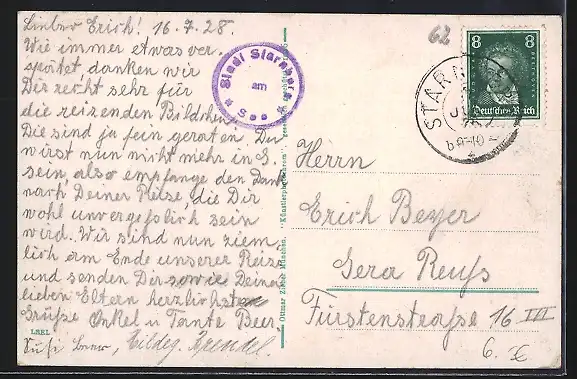 Lieber Erich! 16.7.28.
Wie immer etwas ver-
spätet danken wir
Dir recht sehr für
die reizenden Bildchen.
Die sind ja fein geraten. Du
wirst nun nicht mehr in G.
sein, also empfange den Dank
nach Deiner Reise, die Dir
wohl unvergesslich sein
wird. Wir sind nun ziem-
lich am Ende unserer Reise
und senden Dir sowie Deinen
lieben Eltern herzlichsten
Grüße Onkel u Tante Beer.
Hildeg.
LBEL
Ottmar Zieher München. "Künstlerpostchrom"
Stadt Starnberg
am
See
62
8 8
Deutsches Reich
STARN
Herrn
Erich Beyer
Gera Reuß
Fürstenstraße 16 III
6.